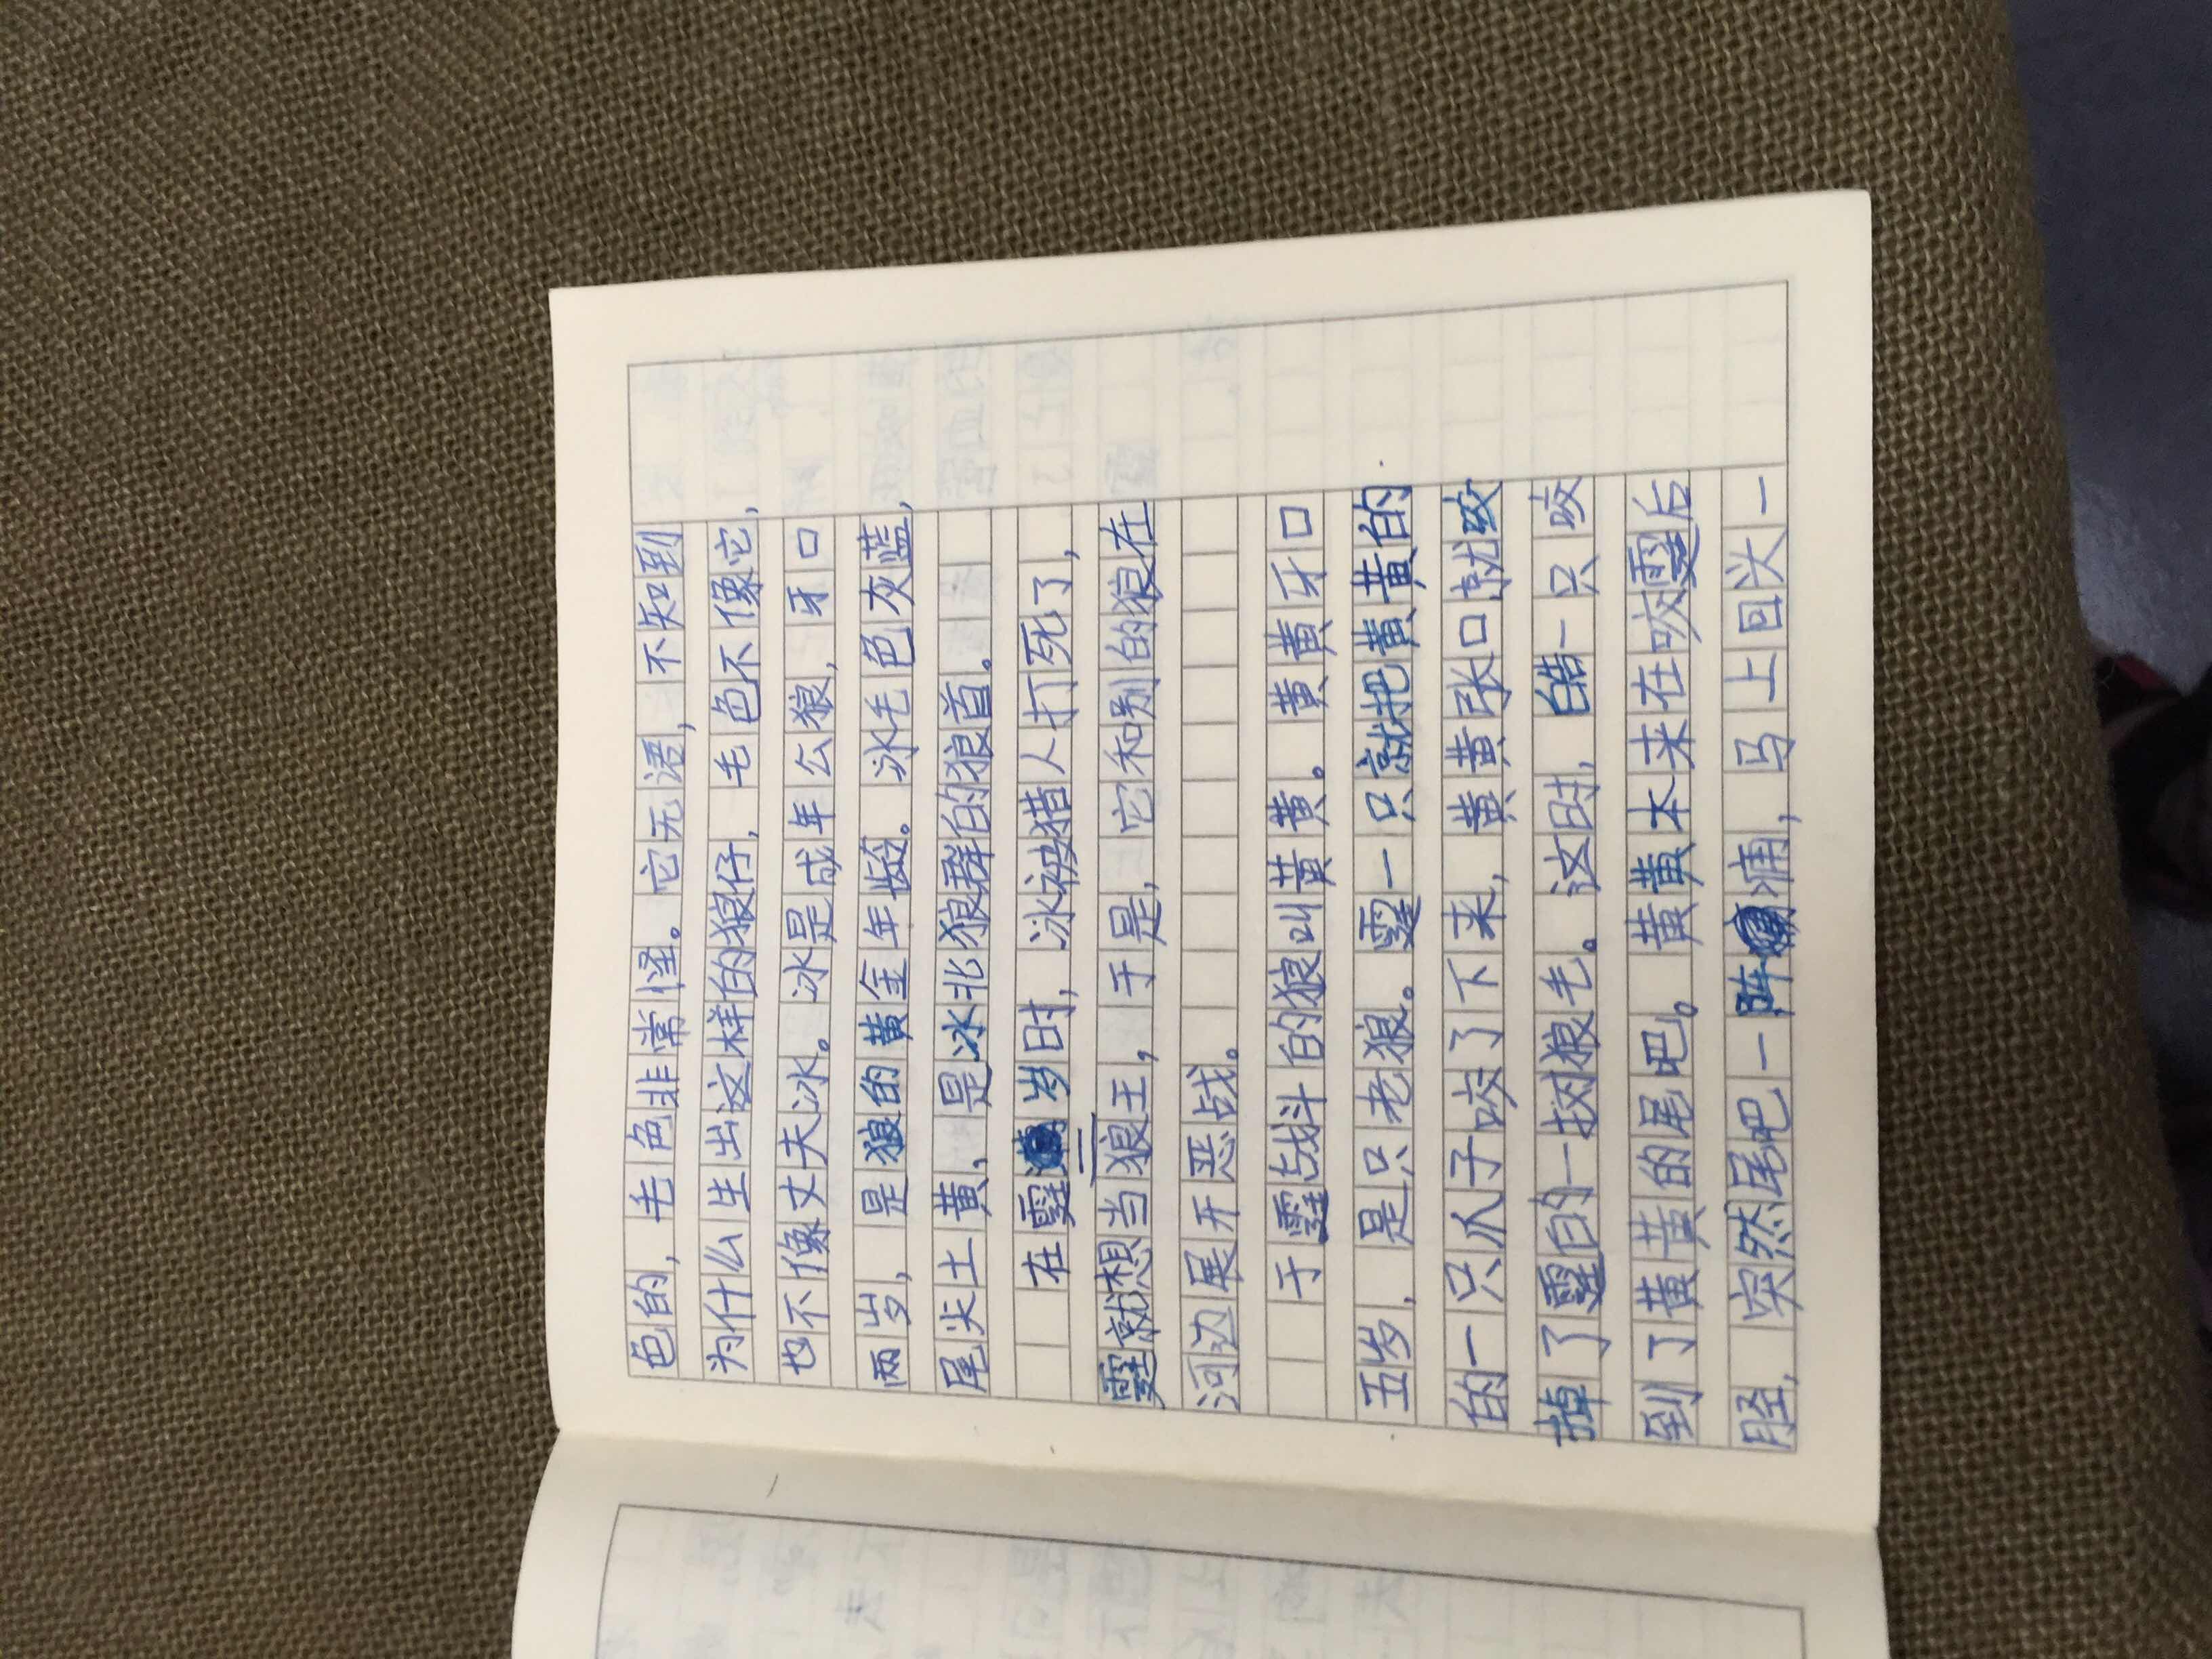 色的，毛色非常怪。它无语，不知到
为什么生出这样的狼仔，毛色不像它，
也不像丈夫冰。冰是成年公狼，牙口
两岁，是狼的黄金年龄。冰毛色灰蓝，
尾尖土黄，是冰北狼群的狼首。
在霆二岁时，冰被猎人打死了，
霆就想当狼王，于是，它和别的狼在
河边展开恶战。
于霆战斗的狼叫黄黄。黄黄牙口
五岁，是只老狼。霆一只就把黄黄的
的一只爪子咬了下来，黄黄张口就咬
掉了霆的一撮狼毛。这时，皓一只咬
到了黄黄的尾吧。黄黄本来在咬霆后
胫，突然尾吧一阵痛，马上回头一